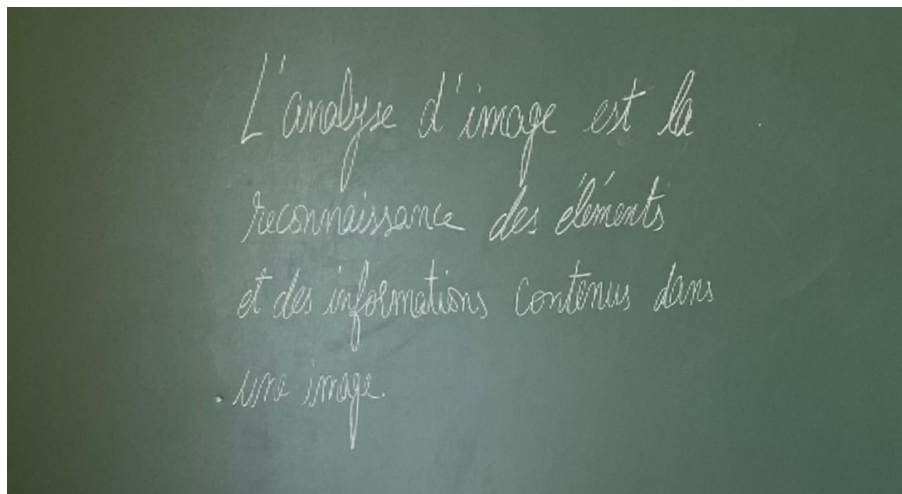 L'analyse d'image est la
reconnaissance des éléments
et des informations contenus dans
une image.